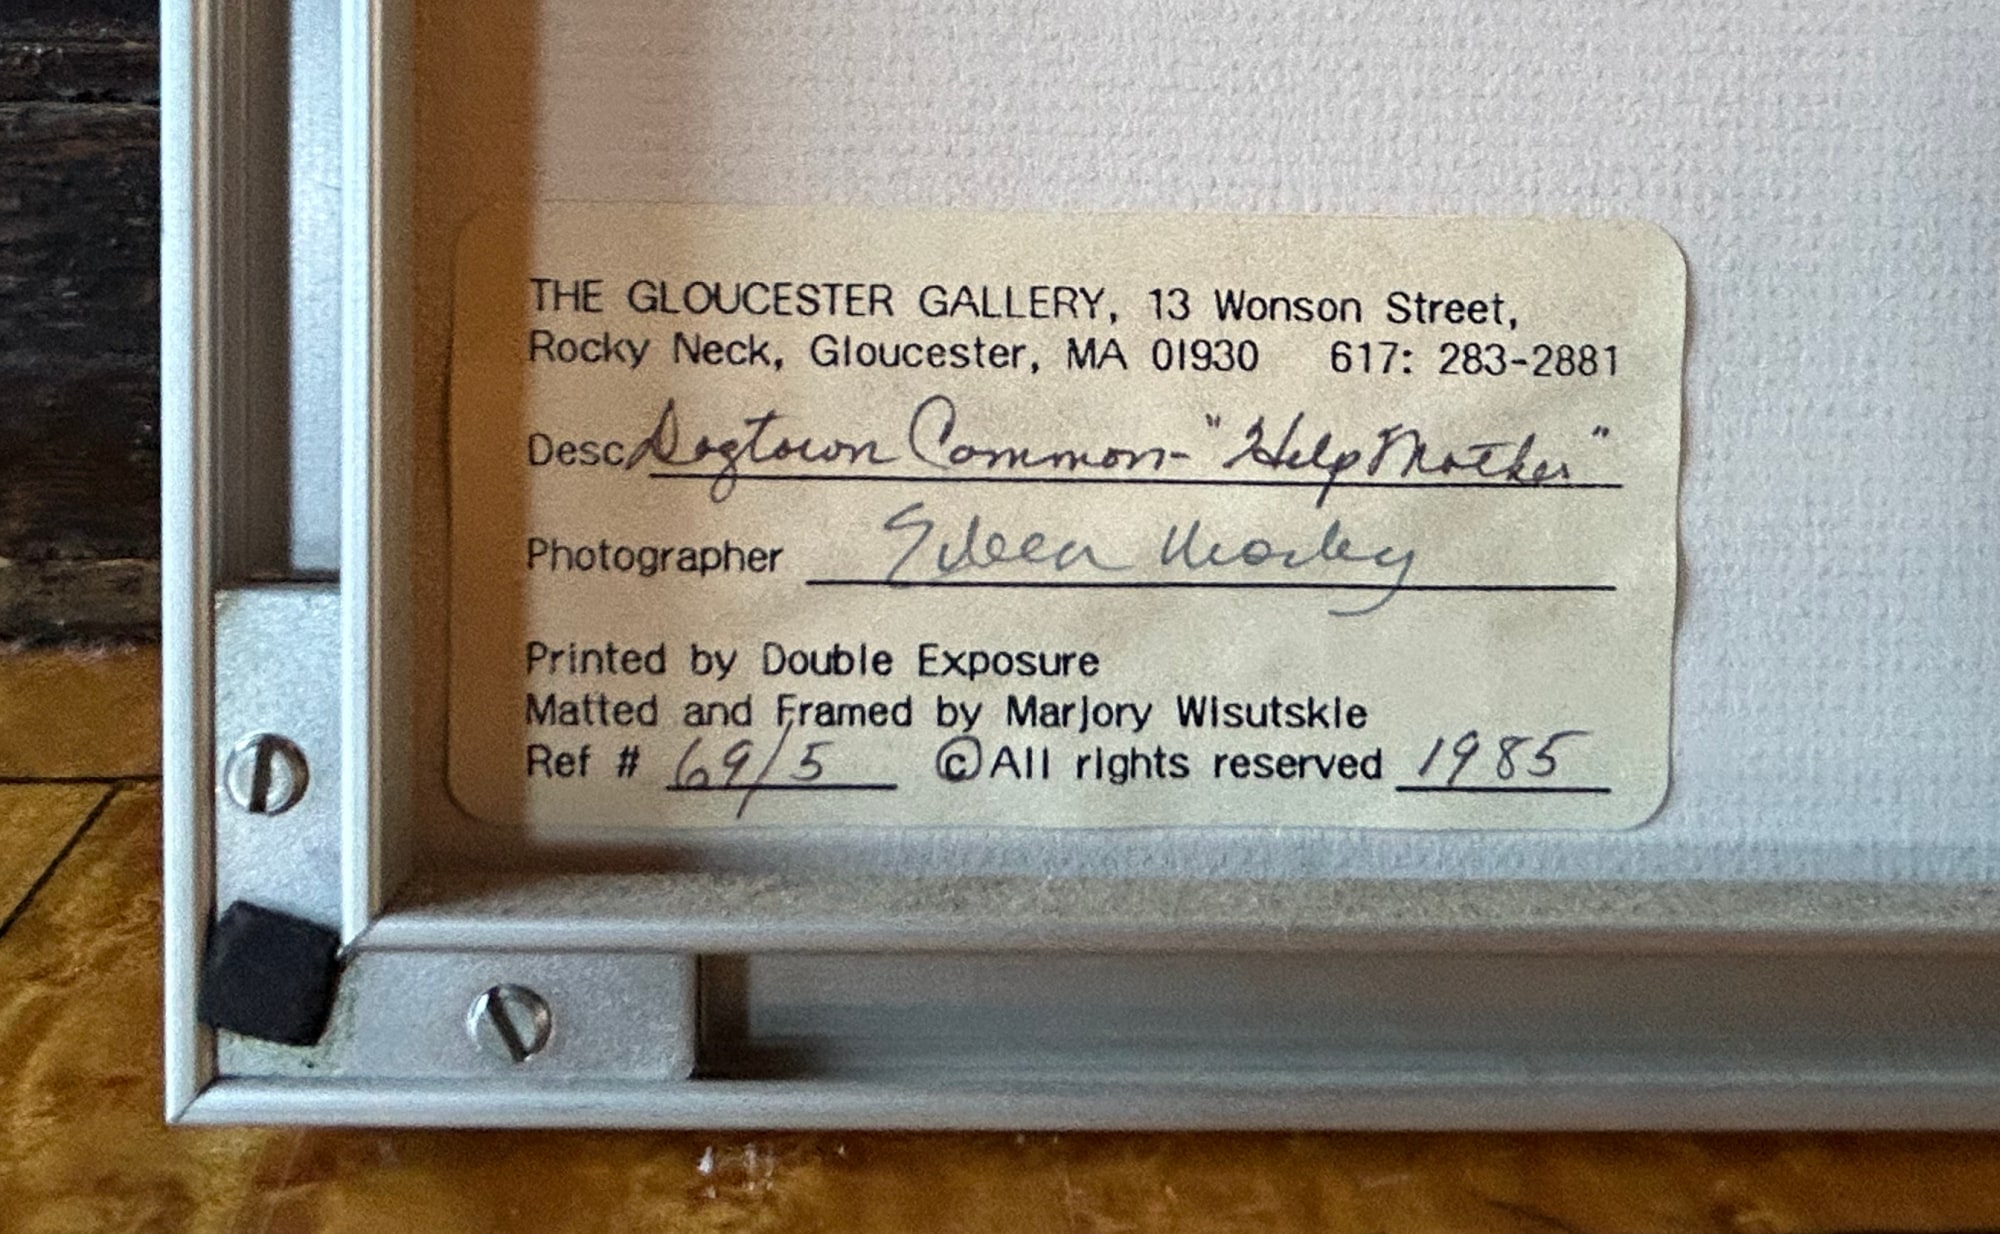 THE GLOUCESTER GALLERY, 13 Wonson Street,
Rocky Neck, Gloucester, MA 01930 617: 283-2881
Desc Dogtown Common - "Help Mother"
Photographer Eileen Morley
Printed by Double Exposure
Matted and Framed by Marjory Wisutskie
Ref # 69/5 ©All rights reserved 1985